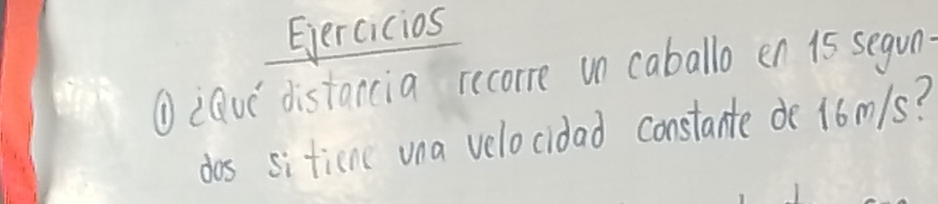 Ejercicios
① ¿Qué distancia recorre un caballo en 15 segun-
dos si tiene una velocidad constante de 16m/s?